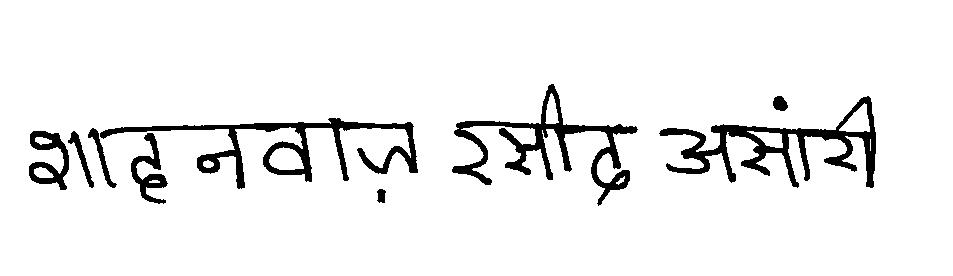 शाहनवाज़ रसीद असांरी